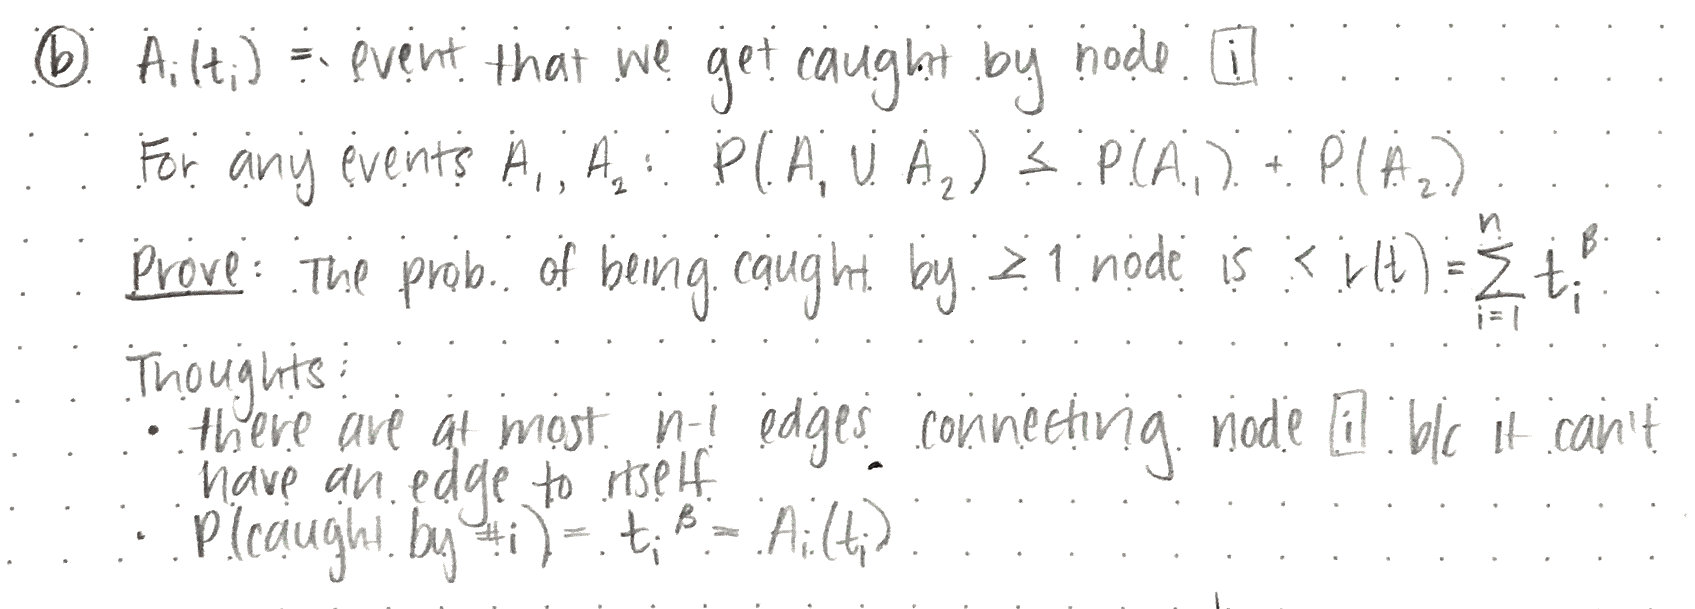 ⓑ Aᵢ(tᵢ) = event that we get caught by node i
For any events A₁, A₂: P(A₁ ∪ A₂) ≤ P(A₁) + P(A₂)
Prove: The prob. of being caught by ≥ 1 node is < r(t) = ∑ᵢ₌₁ⁿ tᵢᵝ
Thoughts:
• there are at most n-1 edges connecting node i b/c it can't
have an edge to itself
• P(caught by #i) = tᵢᵝ = Aᵢ(tᵢ)